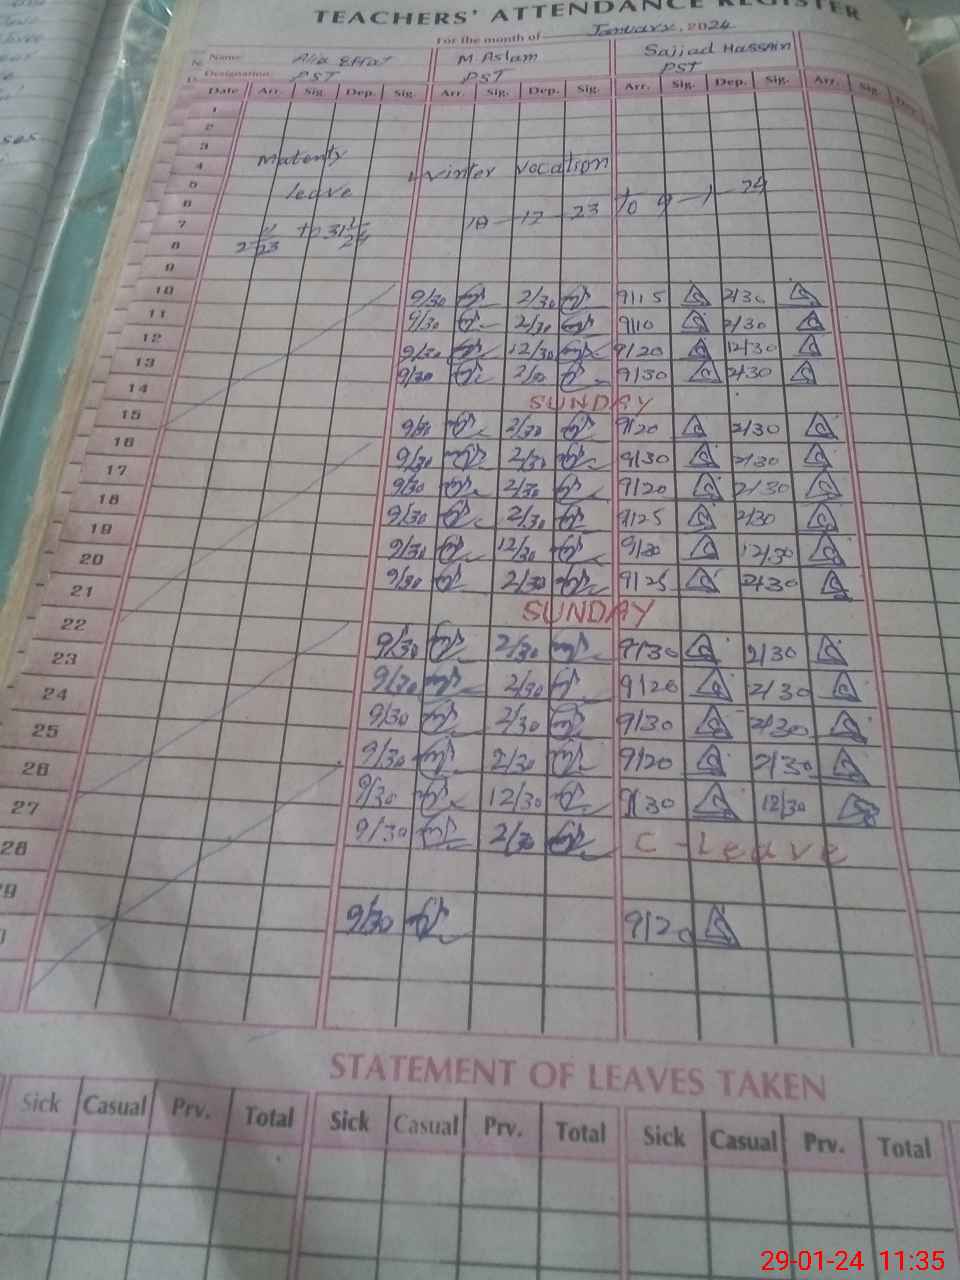 TEACHERS' ATTENDANCE REGISTER
For the month of January, 2024
Name M Aslam Sajjad Hassain
Designation PST PST PST
Date Arr. Sig. Dep. Sig. Arr. Sig. Dep. Sig. Arr. Sig. Dep. Sig. Arr. Sig. Dep.
1
2
3
4 Matenty winter vocation
5 leave
6 18-12-23 to 9-1-24
7 to
8
9
10 9/30 2/30 9/15 2/30
11 9/30 2/30 9/10 2/30
12 9/30 12/30 9/20 12/30
13 9/30 2/30 9/30 2/30
14 SUNDAY
15 9/30 2/30 9/20 2/30
16 9/30 2/30 9/30 2/30
17 9/30 2/30 9/20 2/30
18 9/30 2/30 9/25 2/30
19 9/30 12/30 9/30 12/30
20 9/30 2/30 9/25 2/30
21 SUNDAY
22 9/30 2/30 9/30 2/30
23 9/30 2/30 9/20 2/30
24 9/30 2/30 9/30 2/30
25 9/30 2/30 9/20 2/30
26 9/30 12/30 9/30 12/30
27 9/30 2/30 C-Leave
28
9 9/30 9/20
STATEMENT OF LEAVES TAKEN
Sick Casual Prv. Total Sick Casual Prv. Total Sick Casual Prv. Total
29-01-24 11:35